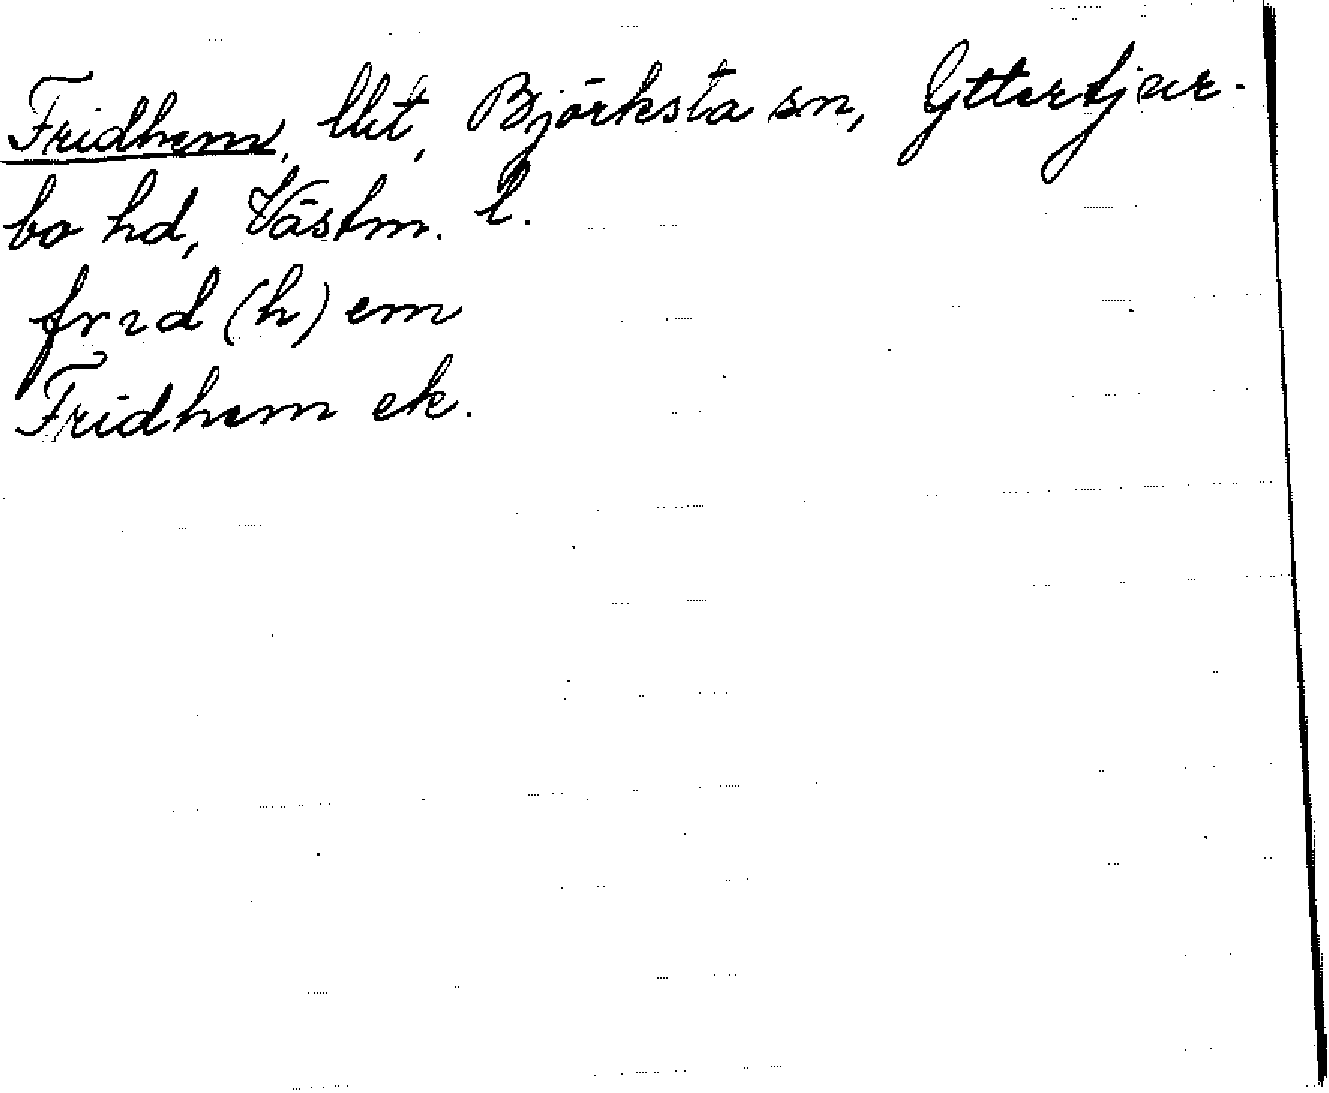 Fridhem, lht, Björksta sn, Yttertjur-
bo hd, Västm. l.
frɪd (h) em
Fridhem ek.